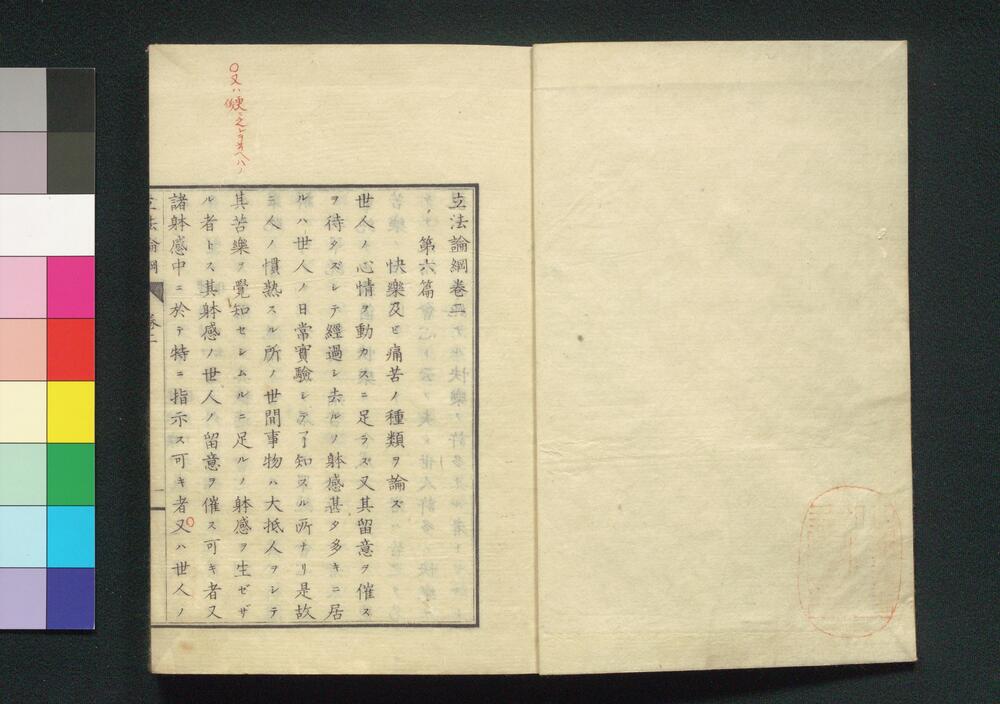 立法論綱卷二
第六篇
快樂及ビ痛苦ノ種類ヲ論ズ
世人ノ心情ヲ動カスニ足ラズ又其留意ヲ催ス
ヲ待タズシテ經過シ去ルノ躰感甚タ多キニ居
ルハ世人ノ日常實驗シテ了知スル所ナリ是故
ニ人ノ慣熟スル所ノ世間事物ハ大抵人ヲシテ
其苦樂ヲ覺知セシムルニ足ルノ躰感ヲ生ゼザ
ル者トス其躰感ノ世人ノ留意ヲ催ス可キ者又
諸躰感中ニ於テ特ニ指示ス可キ者又ハ世人ノ
立法論綱 卷二 一
〇又ハ